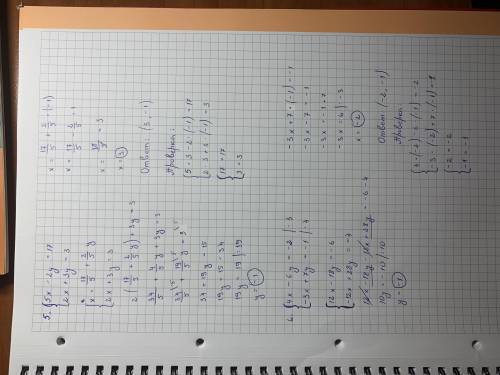 5. {5x - 2y = 17
{2x + 3y = 3
{x = 17/5 + 2/5 y
{2x + 3y = 3
2(17/5 + 2/5 y) + 3y = 3
34/5 + 4/5 y + 3y = 3
34/5 + 19/5 y = 3
34 + 19y = 15
19y = 15 - 34
19y = -19 | :19
y = -1
x = 17/5 + 2/5 · (-1)
x = 17/5 - 2/5 · 1
x = 15/5 = 3
x = 3
Ответ: (3; -1)
Проверка:
{5 · 3 - 2 · (-1) = 17
{2 · 3 + 3 · (-1) = 3
{17 = 17
{3 = 3
6. {4x - 6y = -2 | · 3
{-3x + 7y = -1 | · 4
{12x - 18y = -6
{-12x + 28y = -4
12x - 18y - 12x + 28y = -6 - 4
10y = -10 | :10
y = -1
-3x + 7 · (-1) = -1
-3x - 7 = -1
-3x = -1 + 7
-3x = 6 | : -3
x = -2
Ответ: (-2; -1)
Проверка:
{4 · (-2) - 6 · (-1) = -2
{-3 · (-2) + 7 · (-1) = -1
{-2 = -2
{-1 = -1